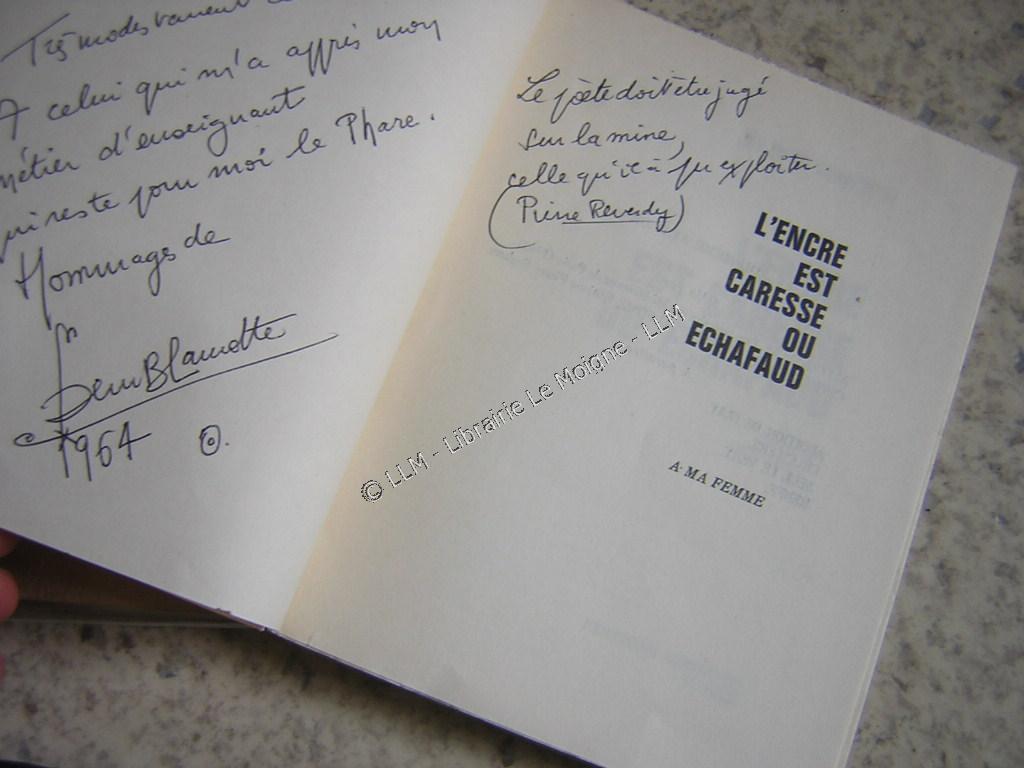 Très modestement
A celui qui m'a appris mon
métier d'enseignant
qui reste pour moi le Phare.
Hommages de
1964
Le poète doit être jugé
sur la mine,
celle qu'il a su exploiter.
(Pierre Reverdy)
L'ENCRE
EST
CARESSE
OU
ECHAFAUD
A MA FEMME
© LLM - Librairie Le Moigne - LLM